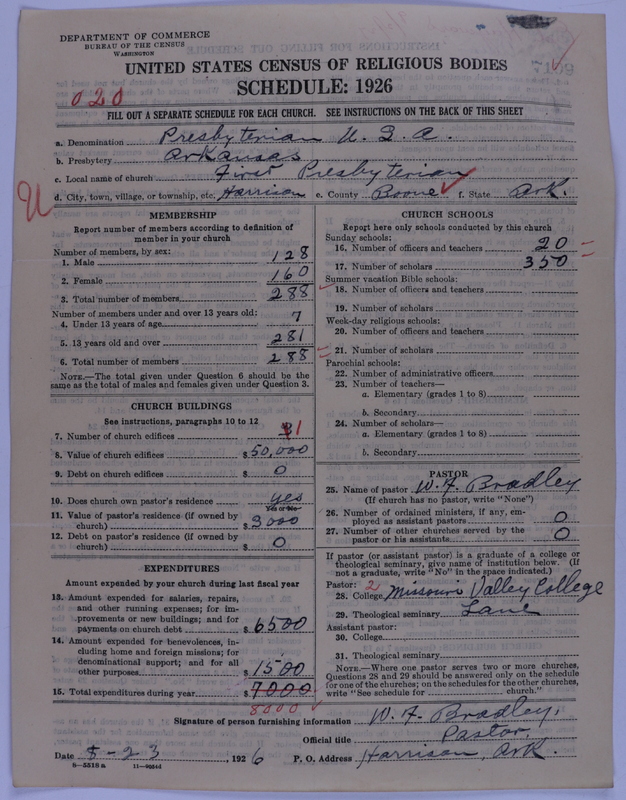 DEPARTMENT OF COMMERCE
BUREAU OF THE CENSUS
WASHINGTON
UNITED STATES CENSUS OF RELIGIOUS BODIES
SCHEDULE: 1926
020
FILL OUT A SEPARATE SCHEDULE FOR EACH CHURCH. SEE INSTRUCTIONS ON THE BACK OF THIS SHEET
a. Denomination Presbyterian U. S. A.
b. Presbytery Arkansas
c. Local name of church First Presbyterian
d. City, town, village, or township, etc. Harrison e. County Boone f. State Ark.
MEMBERSHIP
Report number of members according to definition of
member in your church
Number of members, by sex:
1. Male 128
2. Female 160
3. Total number of members 288
Number of members under and over 13 years old:
4. Under 13 years of age 7
5. 13 years old and over 281
6. Total number of members 288
NOTE.—The total given under Question 6 should be the
same as the total of males and females given under Question 3.
CHURCH BUILDINGS
See instructions, paragraphs 10 to 12
7. Number of church edifices 1
8. Value of church edifices $50,000
9. Debt on church edifices $ 0
10. Does church own pastor's residence yes
Yes or No
11. Value of pastor's residence (if owned by
church) $3000
12. Debt on pastor's residence (if owned by
church) $ 0
EXPENDITURES
Amount expended by your church during last fiscal year
13. Amount expended for salaries, repairs,
and other running expenses; for im-
provements or new buildings; and for
payments on church debt $6500
14. Amount expended for benevolences, in-
cluding home and foreign missions; for
denominational support; and for all
other purposes $1500
15. Total expenditures during year $7000
8000
CHURCH SCHOOLS
Report here only schools conducted by this church
Sunday schools:
16. Number of officers and teachers 20
17. Number of scholars 350
Summer vacation Bible schools:
18. Number of officers and teachers
19. Number of scholars
Week-day religious schools:
20. Number of officers and teachers
21. Number of scholars
Parochial schools:
22. Number of administrative officers
23. Number of teachers—
a. Elementary (grades 1 to 8)
b. Secondary
24. Number of scholars—
a. Elementary (grades 1 to 8)
b. Secondary
PASTOR
25. Name of pastor W. F. Bradley
(If church has no pastor, write "None")
26. Number of ordained ministers, if any, em-
ployed as assistant pastors 0
27. Number of other churches served by the
pastor or his assistants 0
If pastor (or assistant pastor) is a graduate of a college or
theological seminary, give name of institution below. (If
not a graduate, write "No" in the space indicated.)
Pastor: 2
28. College Missouri Valley College
29. Theological seminary Lane
Assistant pastor:
30. College
31. Theological seminary
NOTE.—Where one pastor serves two or more churches,
Questions 28 and 29 should be answered only on the schedule
for one of the churches; on the schedules for the other churches,
write "See schedule for church."
Signature of person furnishing information W. F. Bradley,
Official title Pastor,
Date 5-23, 1926 P. O. Address Harrison, Ark.
8—5518a